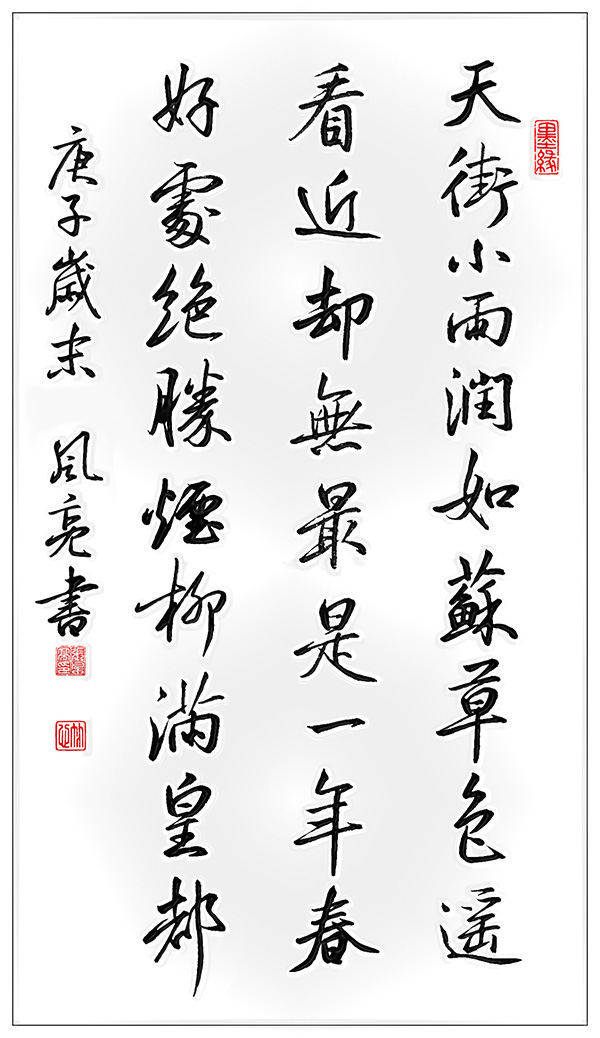 天街小雨潤如蘇草色遥
看近却無最是一年春
好處絶勝煙柳滿皇都
庚子歲末 风亮書
墨緣